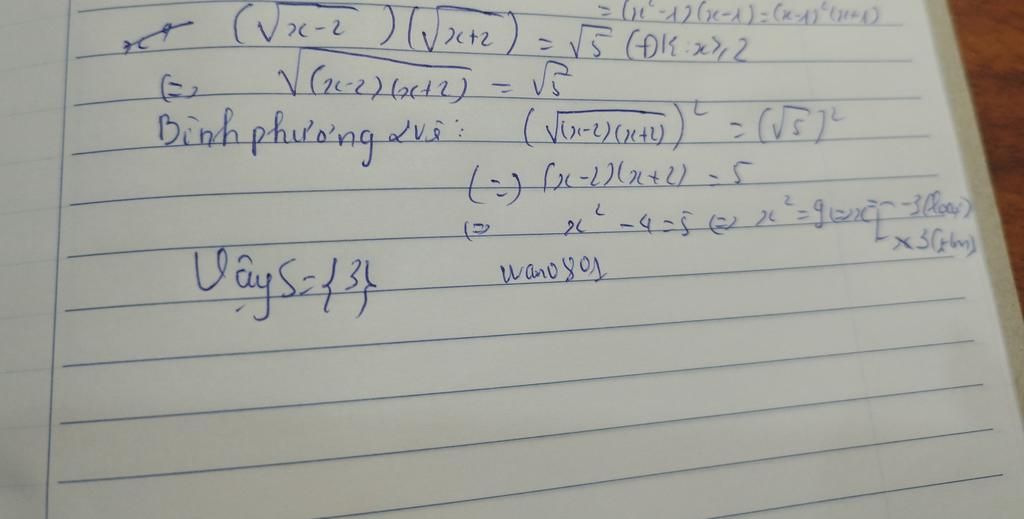 = (x²-1)(x-1) = (x-1)²(x+1)
(√x-2)(√x+2) = √5 (ĐK: x≥2
(=> √(x-2)(x+2) = √5
Bình phương 2 vế: (√(x-2)(x+2))² = (√5)²
(=) (x-2)(x+2) = 5
(=> x² -4 = 5 (=> x² = 9 (=> x= -3 (loại)
x 3 (tm)
Vậy S = {3}
wano801